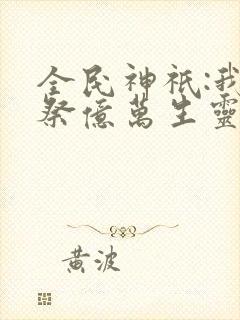 全民神祇:我
祭億萬生靈
黃波